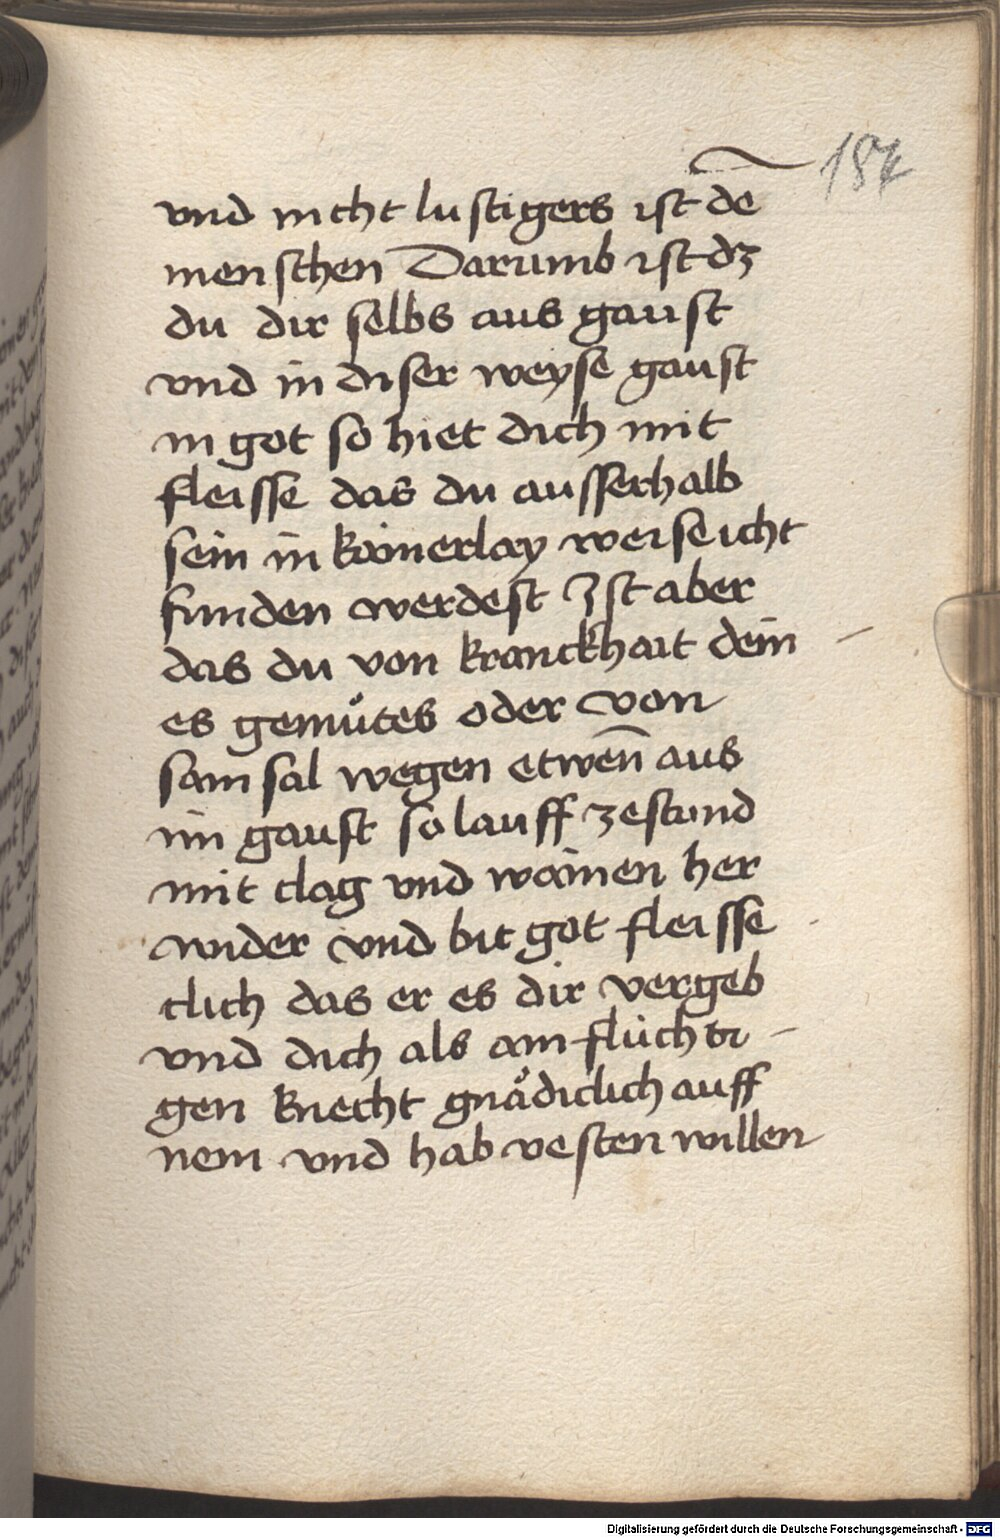 187
vnd nicht lustigers ist dē
menschen Darumb ist dz
du dir selbs aus gaust
vnd in diser weyse gaust
in got so hiet dich mit
fleisse das du ausserhalb
sein in kainerlay weise icht
funden werdest Ist aber
das du von kranckhait dein
es gemuͤtes oder von
sam sal wegen etwen̄ aus
im gaust so lauff zestund
mit clag vnd wainen her
wider vnd bit got fleisse
clich das er es dir vergeb
vnd dich als ain flüchti
gen knecht gnaͤdiclich auff
nem vnd hab vesten willen
Digitalisierung gefördert durch die Deutsche Forschungsgemeinschaft - DFG